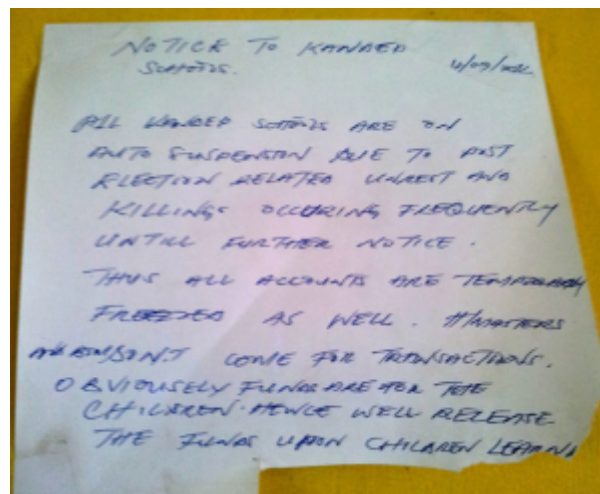 NOTICE TO KANDEP
SCHOOLS.
ALL KANDEP SCHOOLS ARE ON
AUTO SUSPENSION DUE TO POST
ELECTION RELATED UNREST AND
KILLINGS OCCURING FREQUENTLY
UNTILL FURTHER NOTICE.
THUS ALL ACCOUNTS ARE TEMPORARY
FREEZED AS WELL. H/MASTERS
DON'T COME FOR TRANSACTIONS.
OBVIOUSELY FUNDS ARE FOR THE
CHILDREN. HENCE WELL RELEASE
THE FUNDS UPON CHILDREN LEARNIN